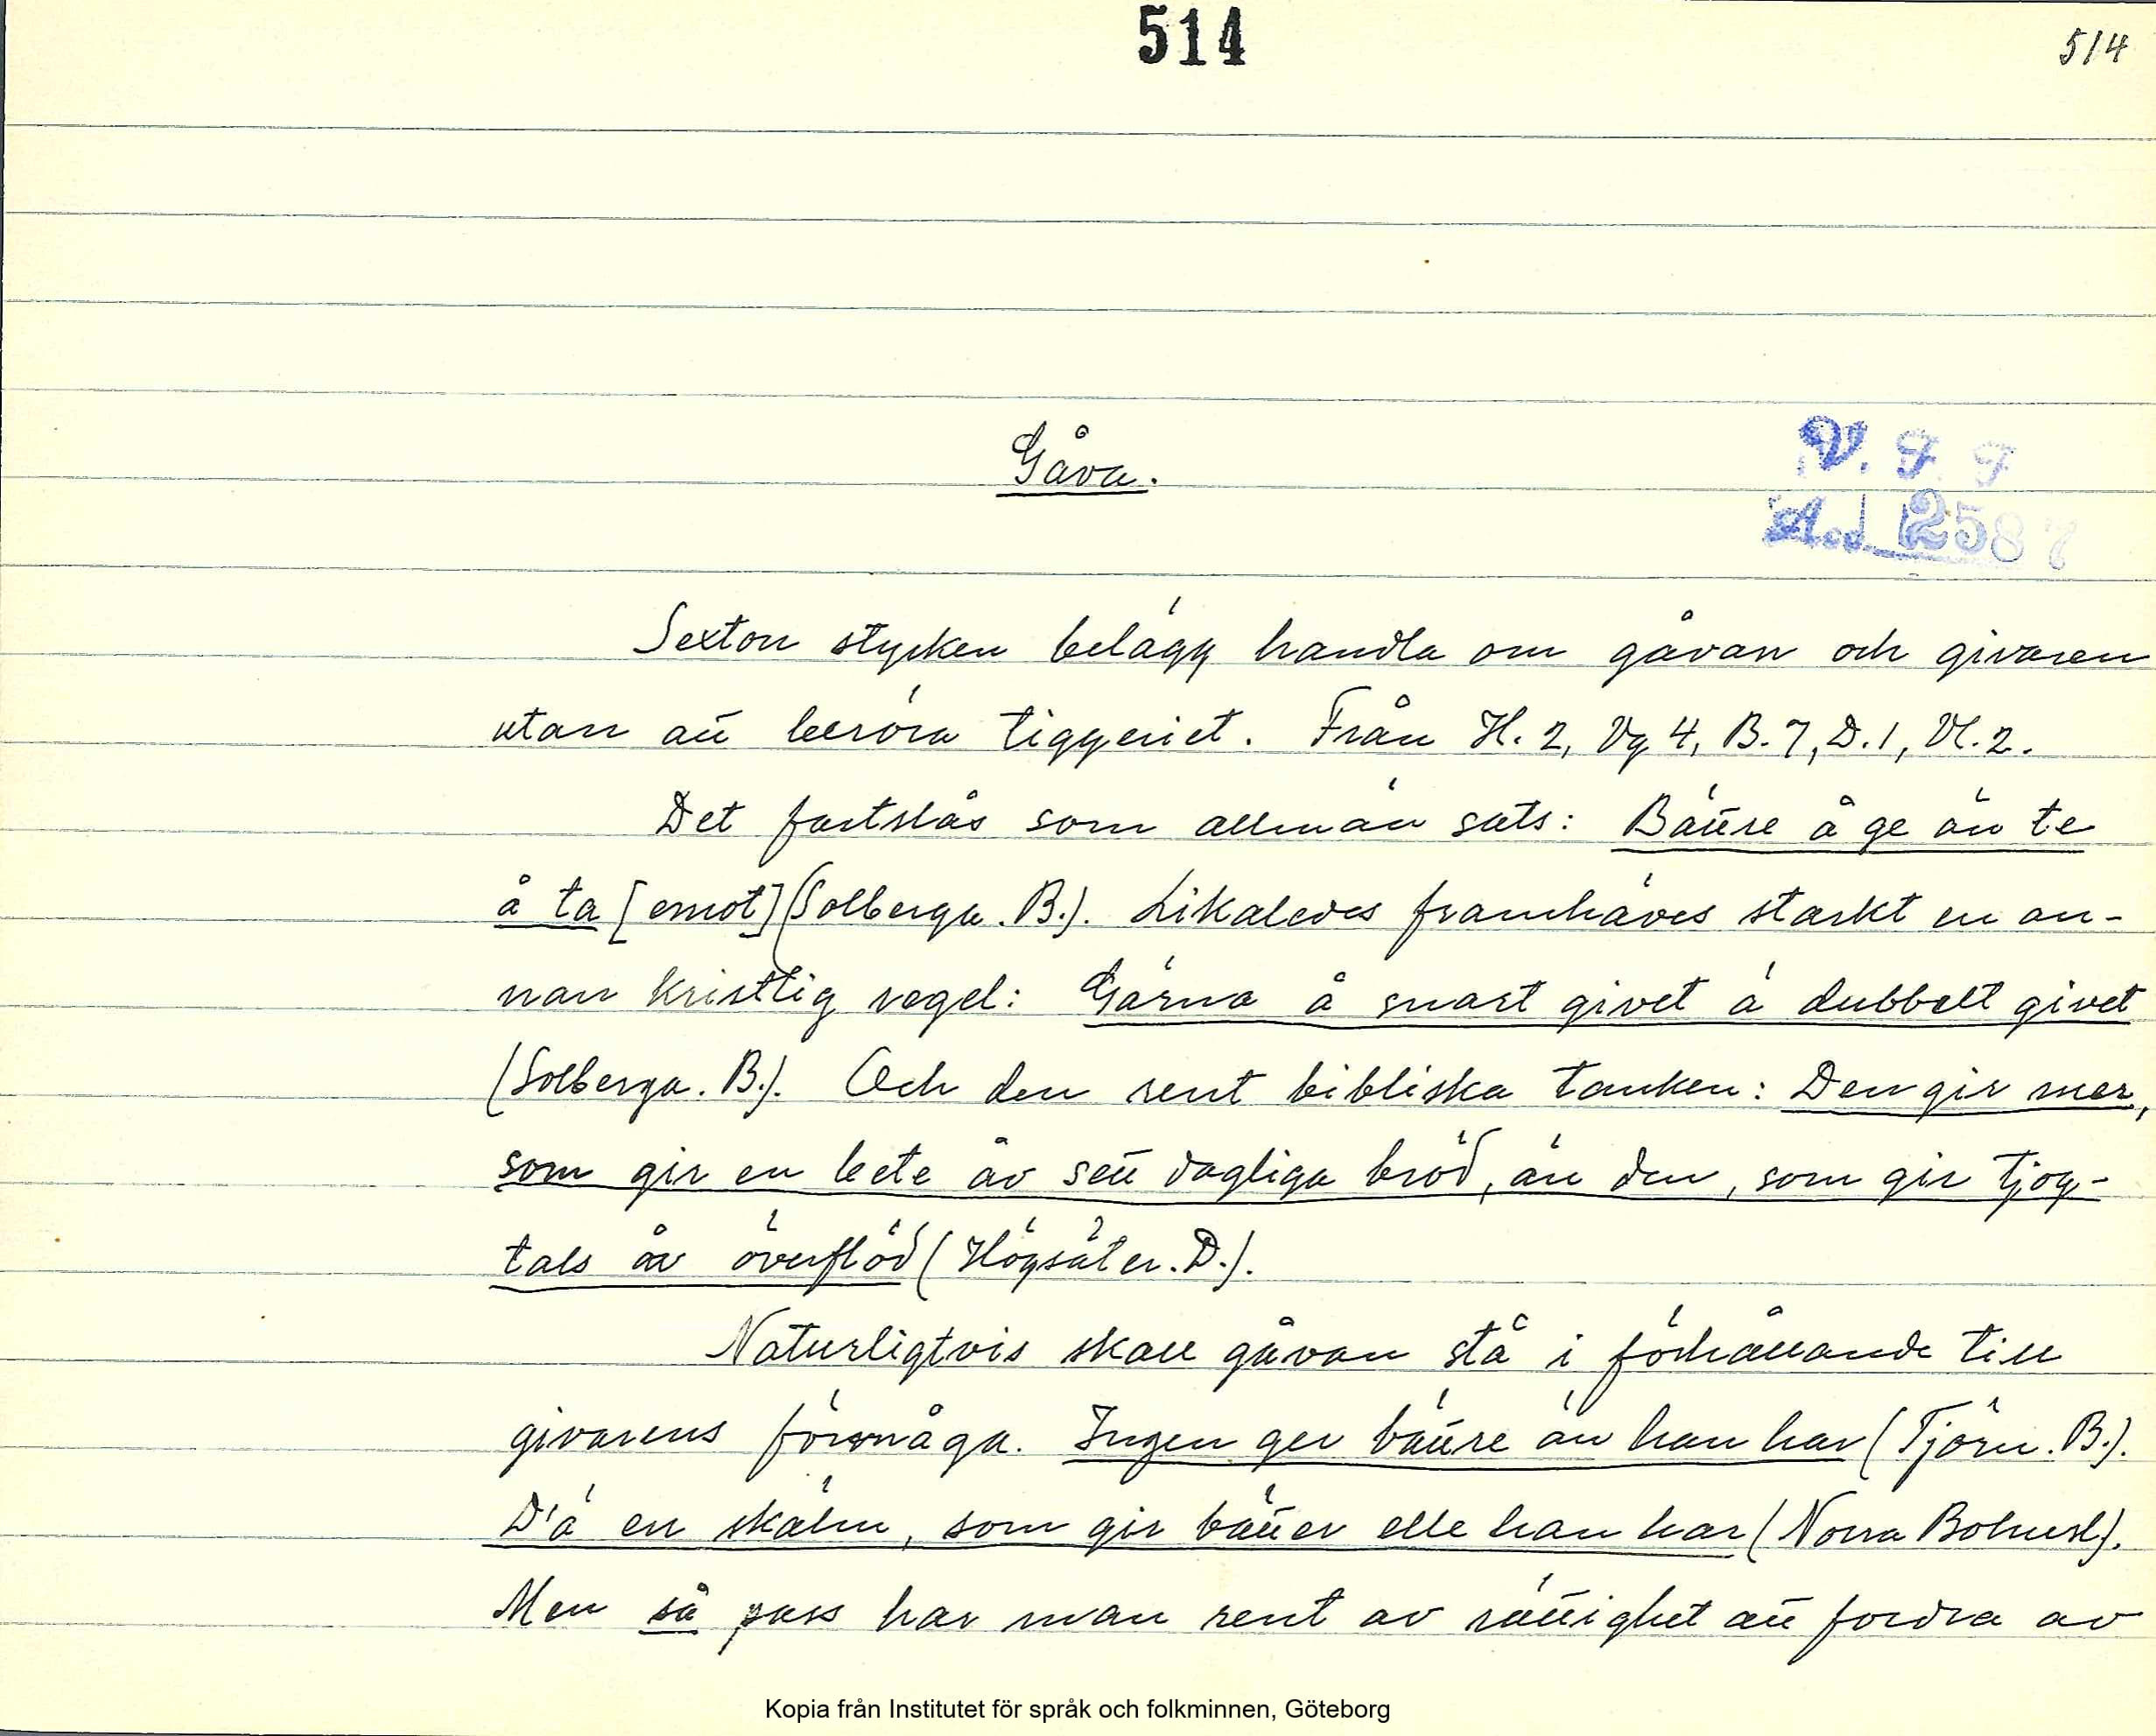 514
514
Gåva.
V. F. F.
Acc. 2587
Sexton stycken belägg handla om gåvan och givaren
utan att beröra tiggeriet. Från H. 2, Vg 4, B. 7, D. 1, Vl. 2.
Det fastslås som allmän sats: Bättre å ge än te
å ta [emot] (Solberga. B.). Likaledes framhäves starkt en an-
nan kristlig regel: Gärna å snart givet ä dubbelt givet
(Solberga. B.). Och den rent bibliska tanken: Den gir mer,
som gir en bete åv sett dagliga bröd, än den, som gir tjog-
tals åv överflöd (Högsäter. D.).
Naturligtvis skall gåvan stå i förhållande till
givarens förmåga. Ingen ger bättre än han har (Tjörn. B.).
D'ä en skälm, som gir bätter elle han har (Norra Bohusl.).
Men så pass har man rent av rättighet att fordra av
Kopia från Institutet för språk och folkminnen, Göteborg